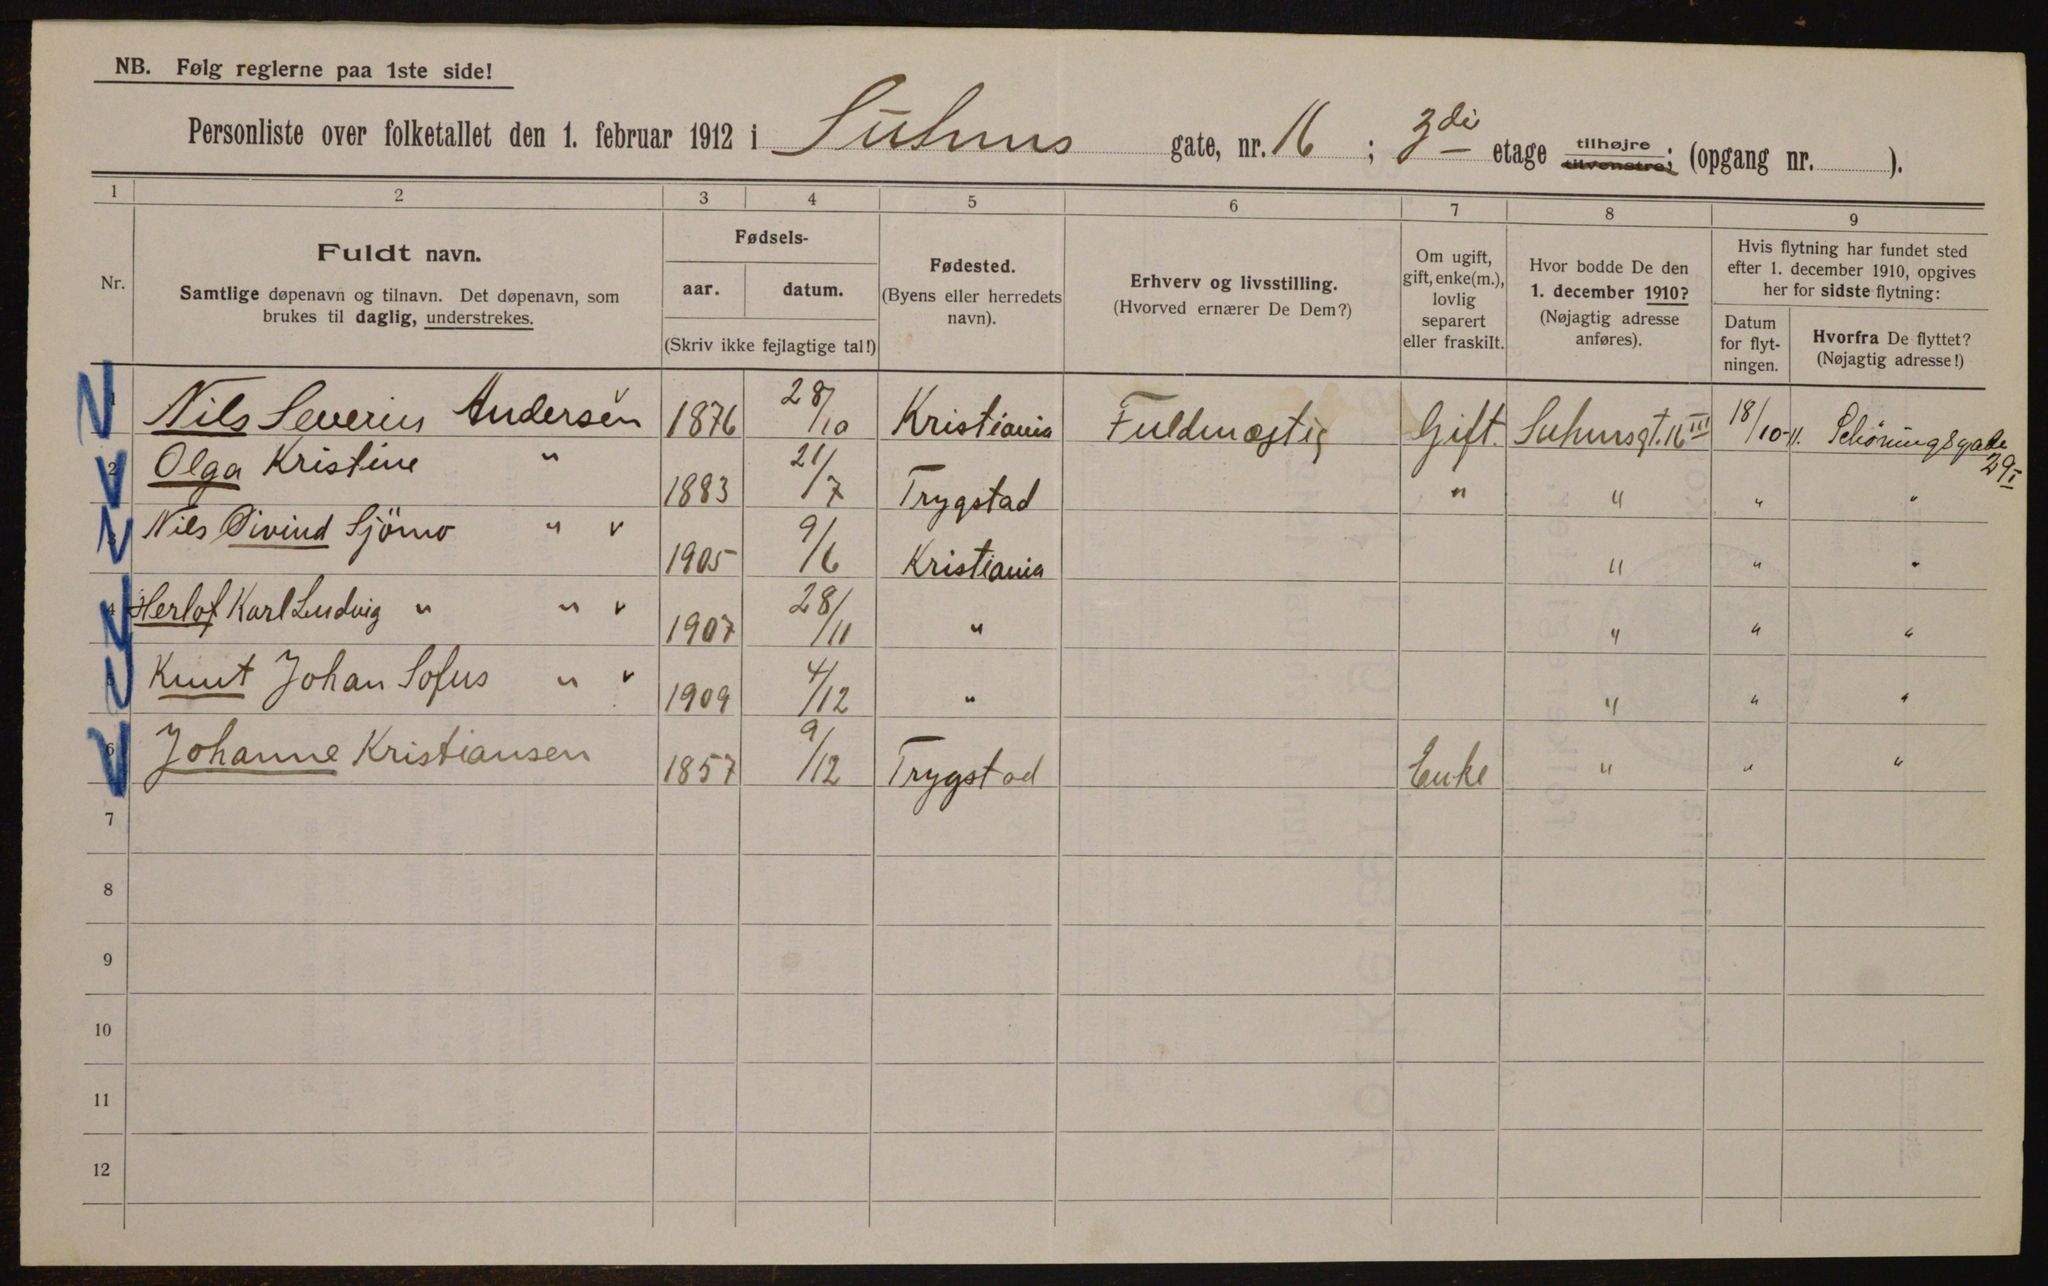 NB. Følg reglerne paa 1ste side!
Personliste over folketallet den 1. februar 1912 i Suhms gate, nr. 16 ; 3die etage tilhøjre tilvenstre; (opgang nr. ).
1 2 3 4 5 6 7 8 9
Nr.
Fuldt navn.
Samtlige døpenavn og tilnavn. Det døpenavn, som
brukes til daglig, understrekes.
Fødsels-
aar. datum.
(Skriv ikke fejlagtige tal!)
Fødested.
(Byens eller herredets
navn).
Erhverv og livsstilling.
(Hvorved ernærer De Dem?)
Om ugift,
gift, enke(m.),
lovlig
separert
eller fraskilt.
Hvor bodde De den
1. december 1910?
(Nøjagtig adresse
anføres).
Hvis flytning har fundet sted
efter 1. december 1910, opgives
her for sidste flytning:
Datum
for flyt-
ningen.
Hvorfra De flyttet?
(Nøjagtig adresse!)
1 Nils Severin Andersen 1876 28/10 Kristiania Fuldmægtig Gift. Suhmsgt. 16 III 18/10-11. Schøningsgade 29 I
2 Olga Kristine " 1883 21/7 Trygstad " " " "
3 Nils Øivind Sjömo " v 1905 9/6 Kristiania " " "
4 Herlof Karl Ludvig " " v 1907 28/11 " " " "
5 Knut Johan Sofus " v 1909 4/12 " " " "
6 Johanne Kristiansen 1857 9/12 Trygstad Enke " " "
7
8
9
10
11
12